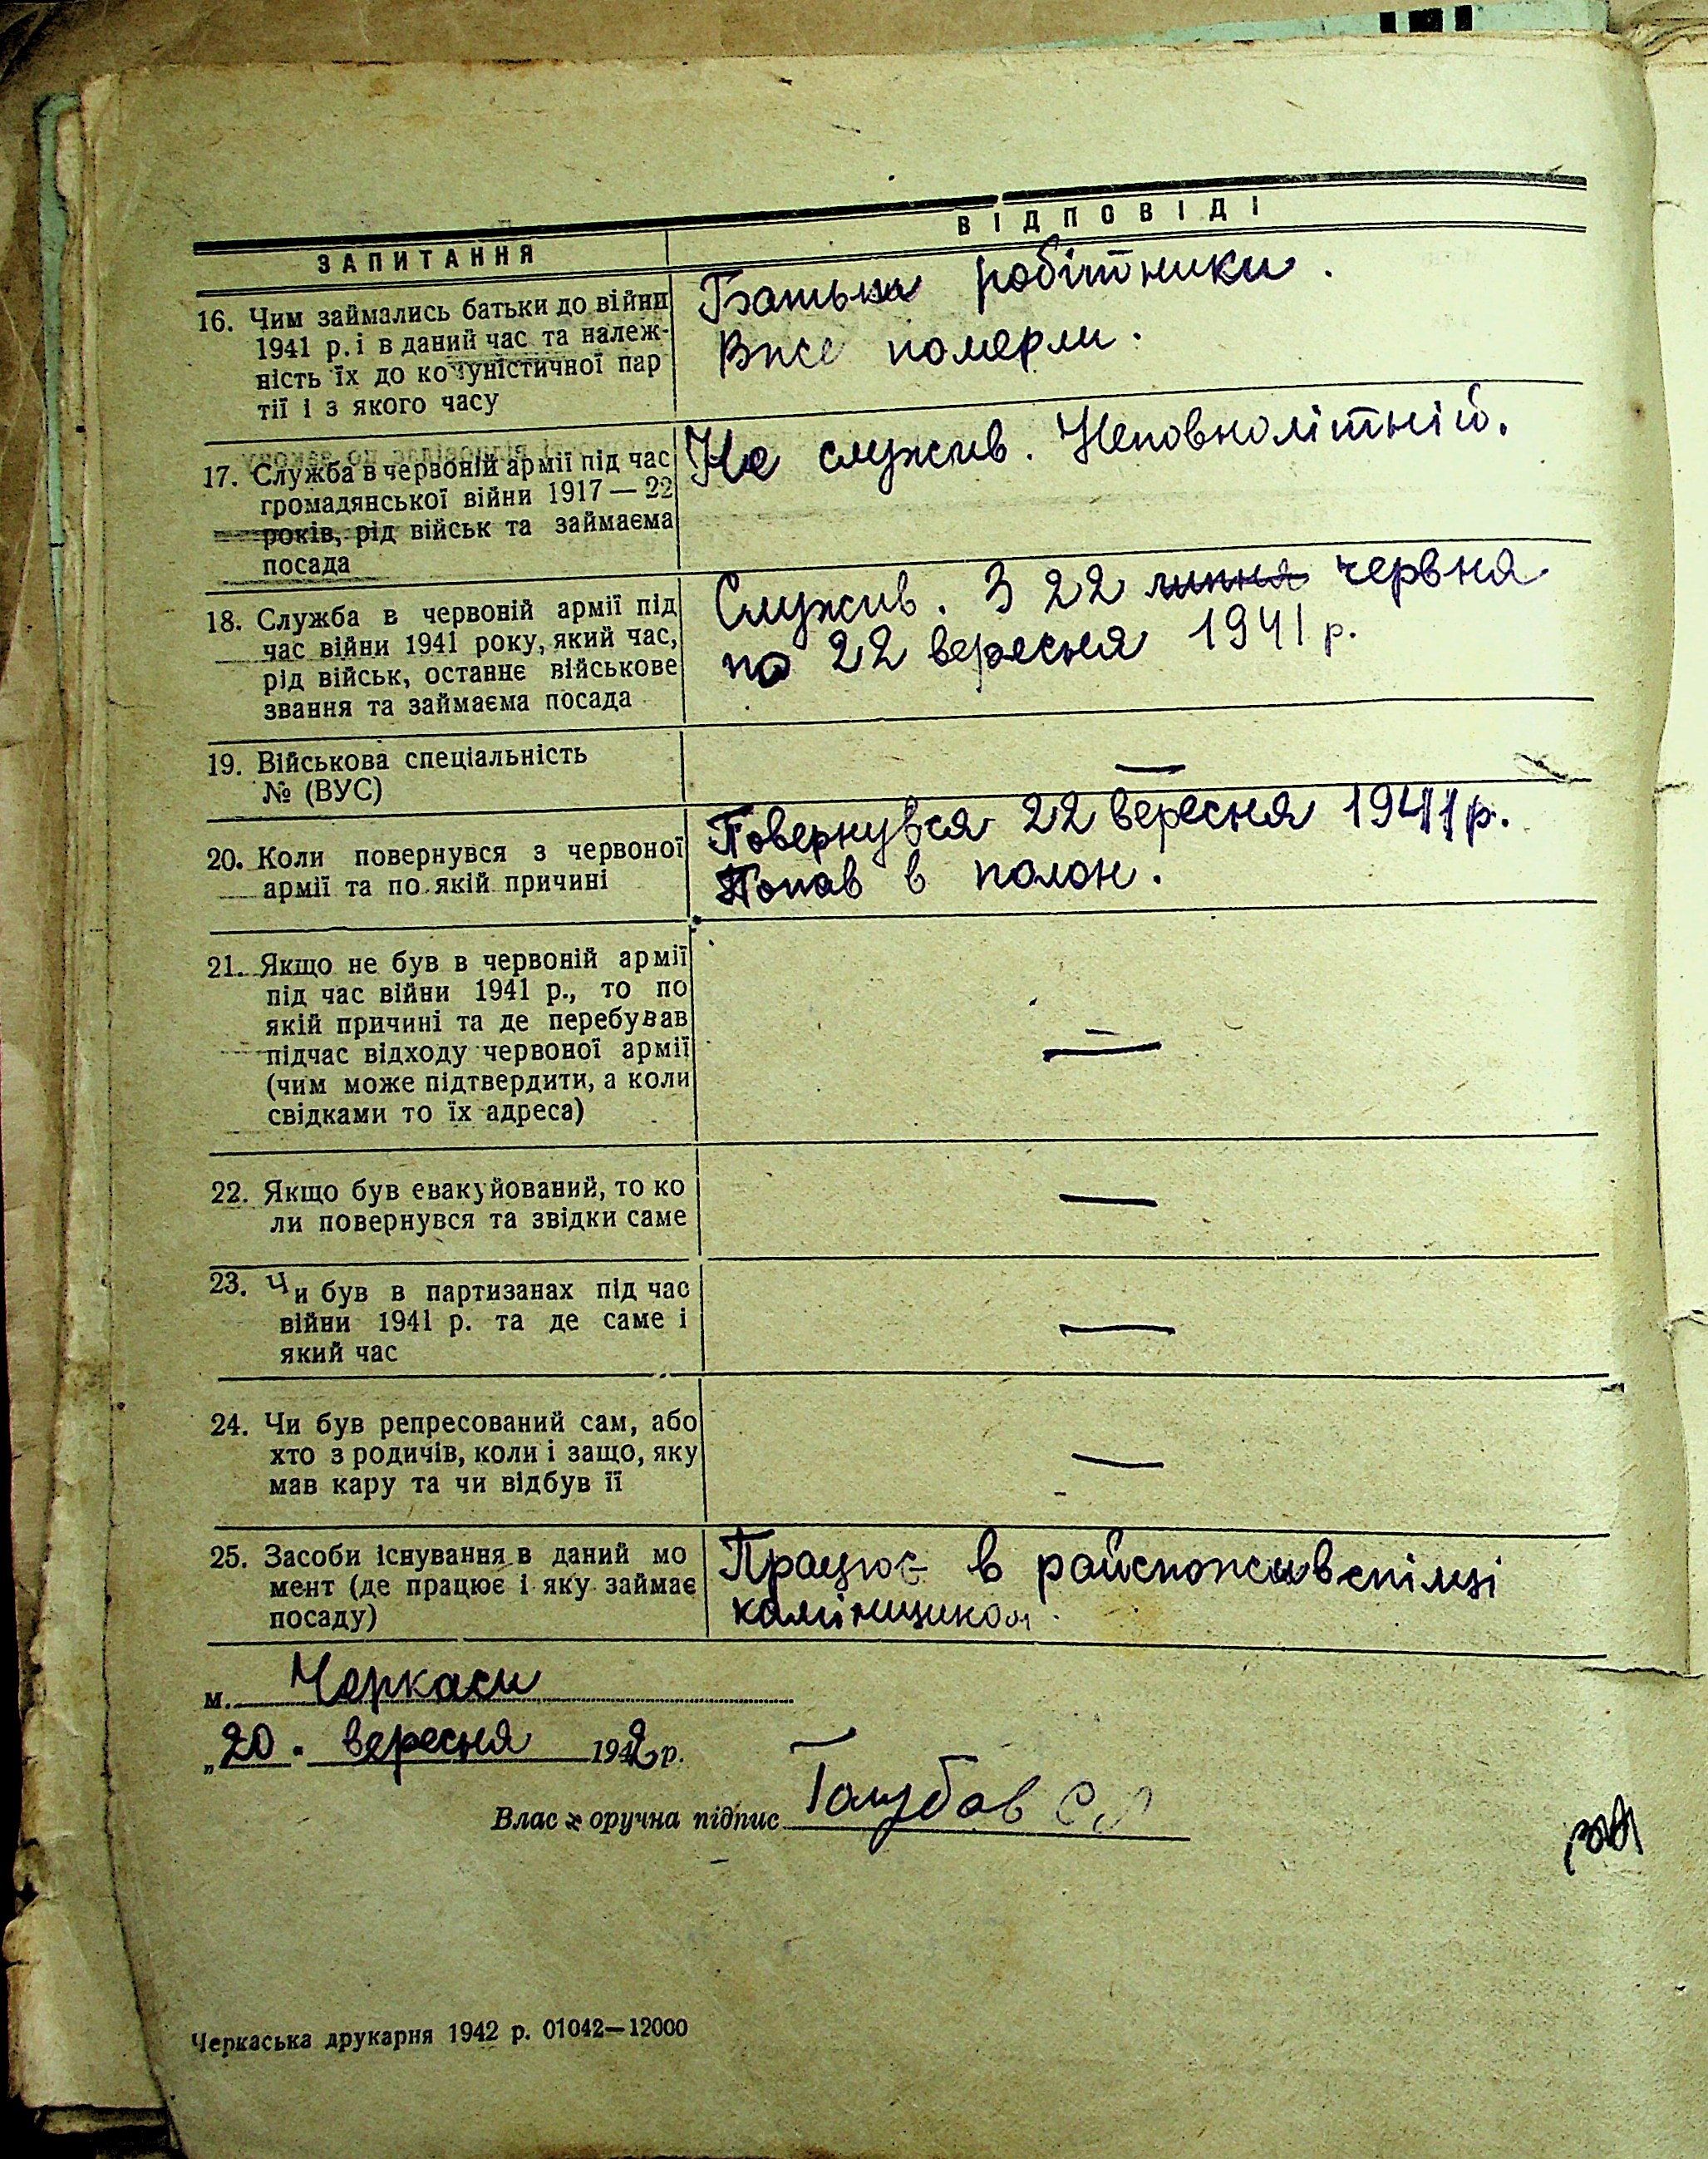 ЗАПИТАННЯ
ВІДПОВІДІ
16. Чим займались батьки до війни
1941 р. і в даний час та належ-
ність їх до комуністичної пар
тії і з якого часу
Батьки робітники.
Вже померли.
17. Служба в червоній армії під час
громадянської війни 1917 — 22
років, рід військ та займаєма
посада
Не служив. Неповнолітній.
18. Служба в червоній армії під
час війни 1941 року, який час,
рід військ, останнє військове
звання та займаєма посада
Служив. З 22 липня червня
по 22 вересня 1941 р.
19. Військова спеціальність
№ (ВУС)
—
20. Коли повернувся з червоної
армії та по якій причині
Повернувся 22 вересня 1941 р.
Попав в полон.
21. Якщо не був в червоній армії
під час війни 1941 р., то по
якій причині та де перебував
підчас відходу червоної армії
(чим може підтвердити, а коли
свідками то їх адреса)
—
22. Якщо був евакуйований, то ко
ли повернувся та звідки саме
—
23. Чи був в партизанах під час
війни 1941 р. та де саме і
який час
—
24. Чи був репресований сам, або
хто з родичів, коли і защо, яку
мав кару та чи відбув її
—
25. Засоби існування в даний мо
мент (де працює і яку займає
посаду)
Працює в райспоживспілці
камінщиком.
м. Черкаси
„20. вересня 1942 р.
Влас оручна підпис Голубов С
Черкаська друкарня 1942 р. 01042—12000